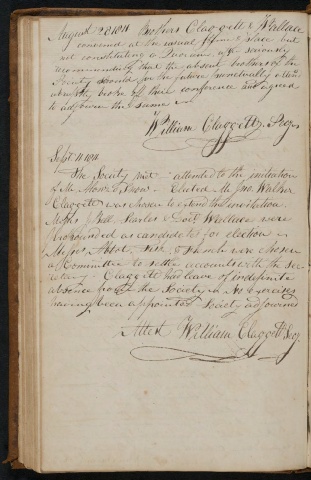 August 28 1811 Brothers Claggett & Wallace
convened at the usual time & place but
not constituting a Quorum, after seriously
recommending that the absent brothers of the
Society should for the future punctually attend
broke off their conference and agreed
to adjourn the same
William Claggett, Pro
Sept 11 1811
The Society met attended to the initiation
of Mr Howard Elected Mr Jno. Walker
Claggett was chosen to extend the invitation
Messrs Bell, & Doct Wallace were
propounded as candidates for election
Messrs Abbot, & were chosen
a Committee to settle accounts with the Sec
Claggett had leave of indefinite
absence from the Society its Exercises
having been appointed Society adjourned
Attest William Claggett Secy